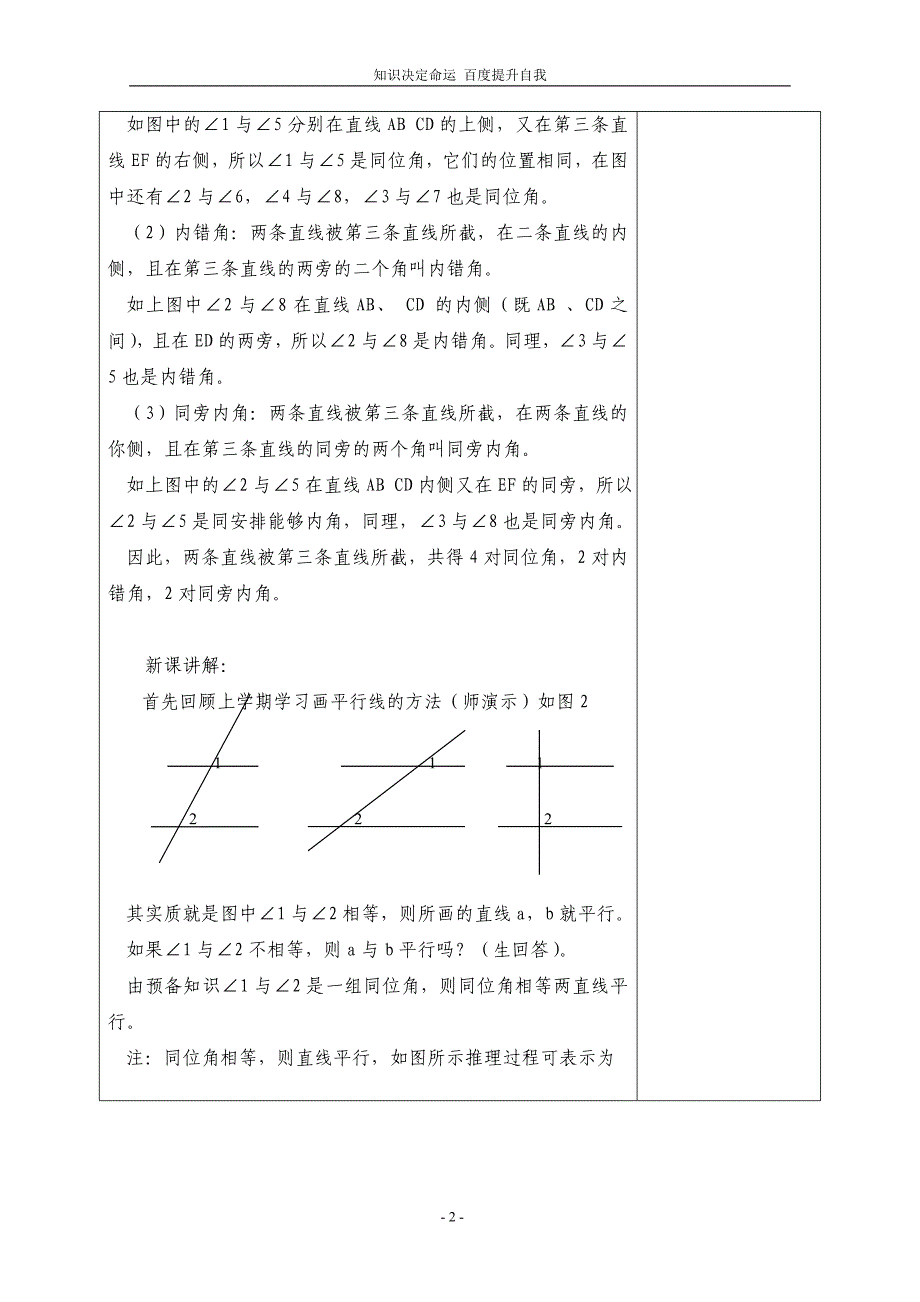 知识决定命运 百度提升自我
如图中的∠1与∠5分别在直线AB CD的上侧，又在第三条直
线EF的右侧，所以∠1与∠5是同位角，它们的位置相同，在图
中还有∠2与∠6，∠4与∠8，∠3与∠7也是同位角。
（2）内错角：两条直线被第三条直线所截，在二条直线的内
侧，且在第三条直线的两旁的二个角叫内错角。
如上图中∠2与∠8在直线AB、 CD 的内侧（既AB 、CD之
间），且在ED的两旁，所以∠2与∠8是内错角。同理，∠3与∠
5也是内错角。
（3）同旁内角：两条直线被第三条直线所截，在两条直线的
你侧，且在第三条直线的同旁的两个角叫同旁内角。
如上图中的∠2与∠5在直线AB CD内侧又在EF的同旁，所以
∠2与∠5是同安排能够内角，同理，∠3与∠8也是同旁内角。
因此，两条直线被第三条直线所截，共得4对同位角，2对内
错角，2对同旁内角。
新课讲解：
首先回顾上学期学习画平行线的方法（师演示）如图2
1 1 1
2 2 2
其实质就是图中∠1与∠2相等，则所画的直线a，b就平行。
如果∠1与∠2不相等，则a与b平行吗？（生回答）。
由预备知识∠1与∠2是一组同位角，则同位角相等两直线平
行。
注：同位角相等，则直线平行，如图所示推理过程可表示为
- 2 -